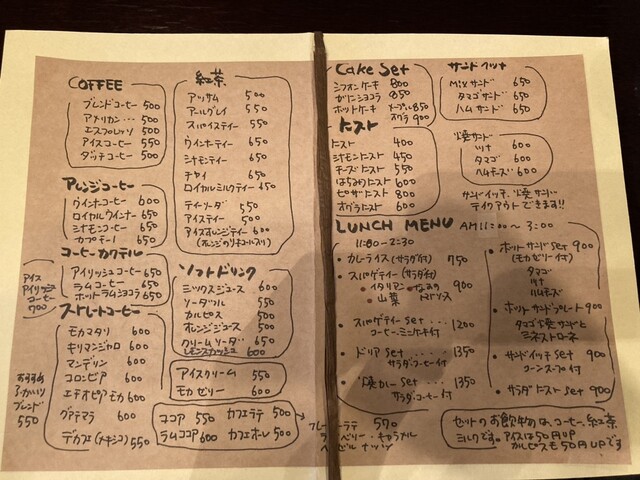 COFFEE
ブレンドコーヒー 500
アメリカン・・・ 500
エスプレッソ 500
アイスコーヒー 550
ダッチコーヒー 500
アレンジコーヒー
ウインナコーヒー 600
ロイヤルウインナー 650
シナモンコーヒー 600
カプチーノ 650
コーヒーカクテル
アイリッシュコーヒー 650
ラムコーヒー 650
ホットラムショコラ 650
アイス
アイリッシュ
コーヒー
700
ストレートコーヒー
モカマタリ 600
キリマンジャロ 600
マンデリン 600
コロンビア 600
エチオピアモカ 600
グアテマラ 600
デカフェ(メキシコ) 550
おすすめ
ブレンド
550
紅茶
アッサム 500
アールグレイ 500
スパイスティー 550
ウインナティー 600
シナモンティー 600
チャイ 650
ロイヤルミルクティー 650
ティーソーダ 550
アイスティー 500
アイスオレンジティー 600
ソフトドリンク
ミックスジュース 600
ソーダツル 550
カルピス 500
オレンジジュース 500
クリームソーダ 650
レモンスカッシュ 600
アイスクリーム 550
モカゼリー 600
ココア 550 カフェラテ 500
ラムココア 600 カフェオーレ 500
570
Cake Set
シフォンケーキ 800
ガトーショコラ 850
ホットケーキ メープル 850
オグラ 900
トースト
トースト 400
シナモントースト 450
チーズトースト 550
はちみつトースト 600
ピザトースト 800
オグラトースト 600
サンドイッチ
Mixサンド 650
タマゴサンド 650
ハムサンド 650
焼サンド
ツナ 600
タマゴ 600
ハムチーズ 650
サンドイッチ、焼サンド
テイクアウトできます!!
LUNCH MENU AM11:00〜3:00
11:00-2:30
カレーライス(サラダ付) 750
スパゲティー(サラダ付) 900
・イタリアン ・なみの
・山菜 ・トマトソース
・スパゲティーset 1200
コーヒー、ミニケーキ付
・ドリアset 1350
サラダ・コーヒー付
・焼カレーset 1350
サラダ・コーヒー付
・ホットサンドset 900
(モカゼリー付)
タマゴ
ツナ
ハムチーズ
・ホットサンドプレート 900
タマゴ焼サンドと
ミネストローネ
・サンドイッチset 900
コーンスープ付
・サラダトーストset 900
セットのお飲物は、コーヒー、紅茶
ミルクです。アイスは50円UP
カルピスも50円UPです